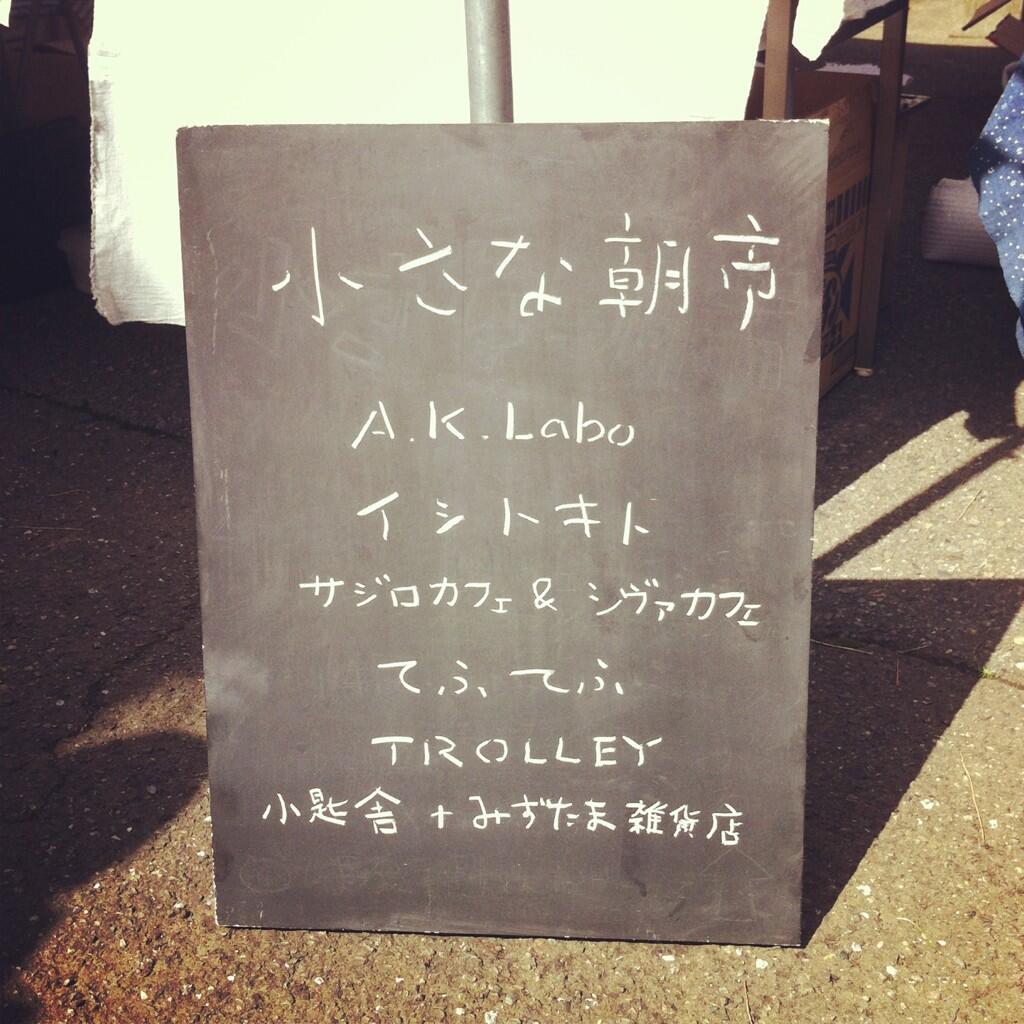 小さな朝市
A.K.Labo
イシトキト
サジロカフェ & シヴァカフェ
てふてふ
TROLLEY
小匙舎 + みずたま雑貨店